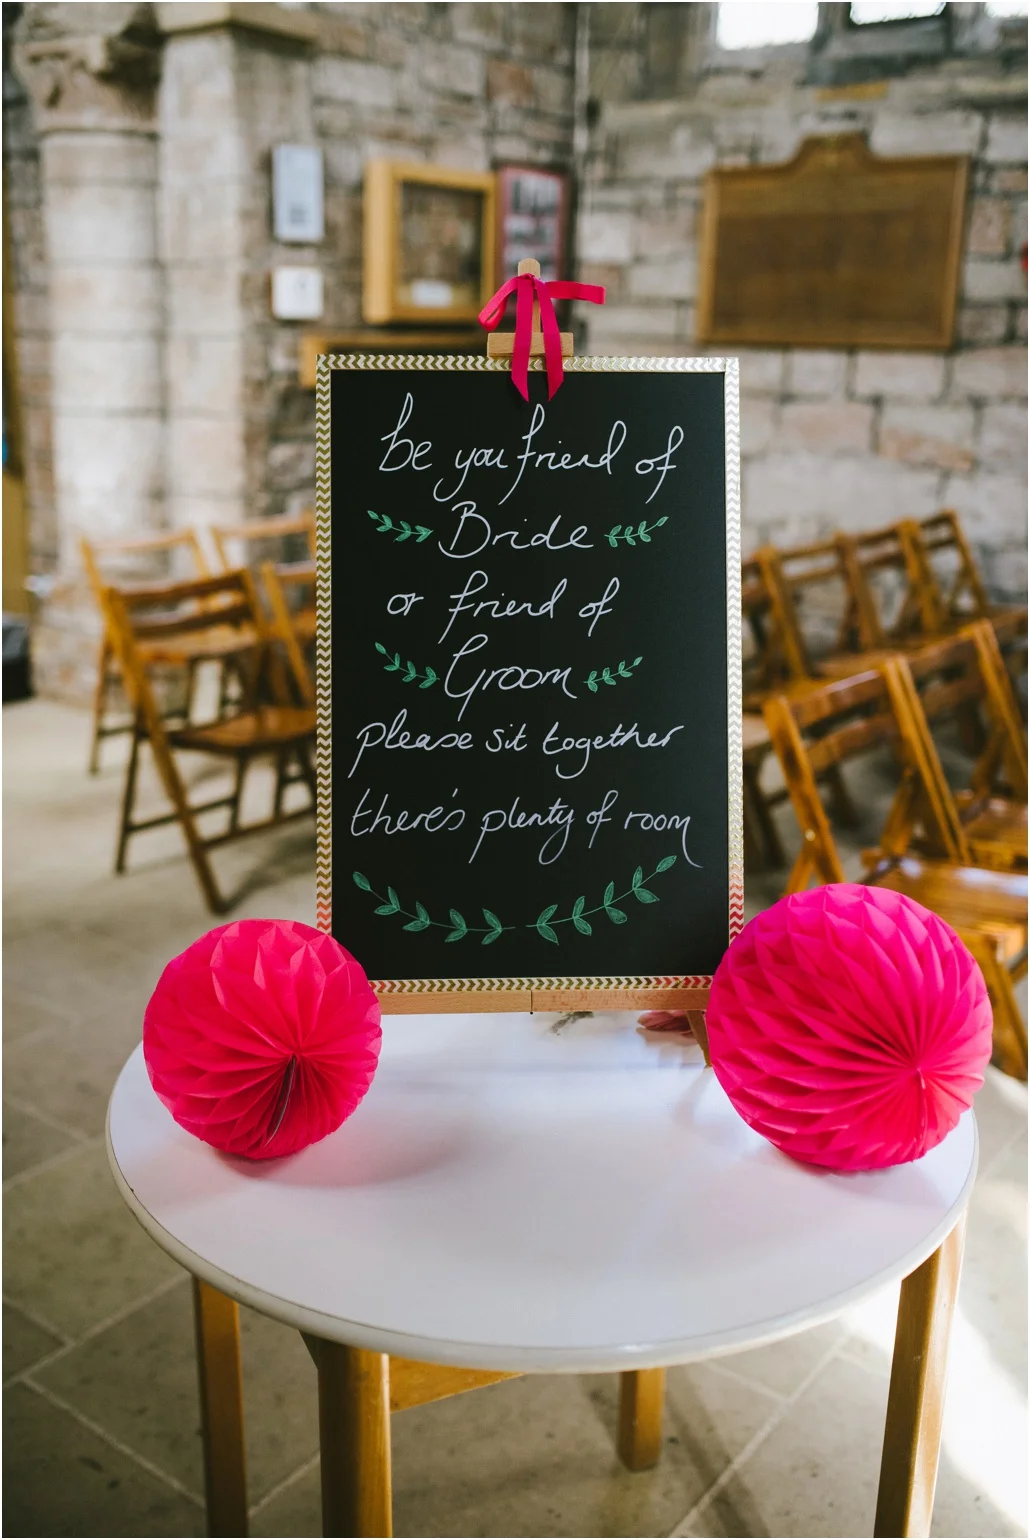 be you friend of
Bride
or friend of
Groom
please sit together
there's plenty of room